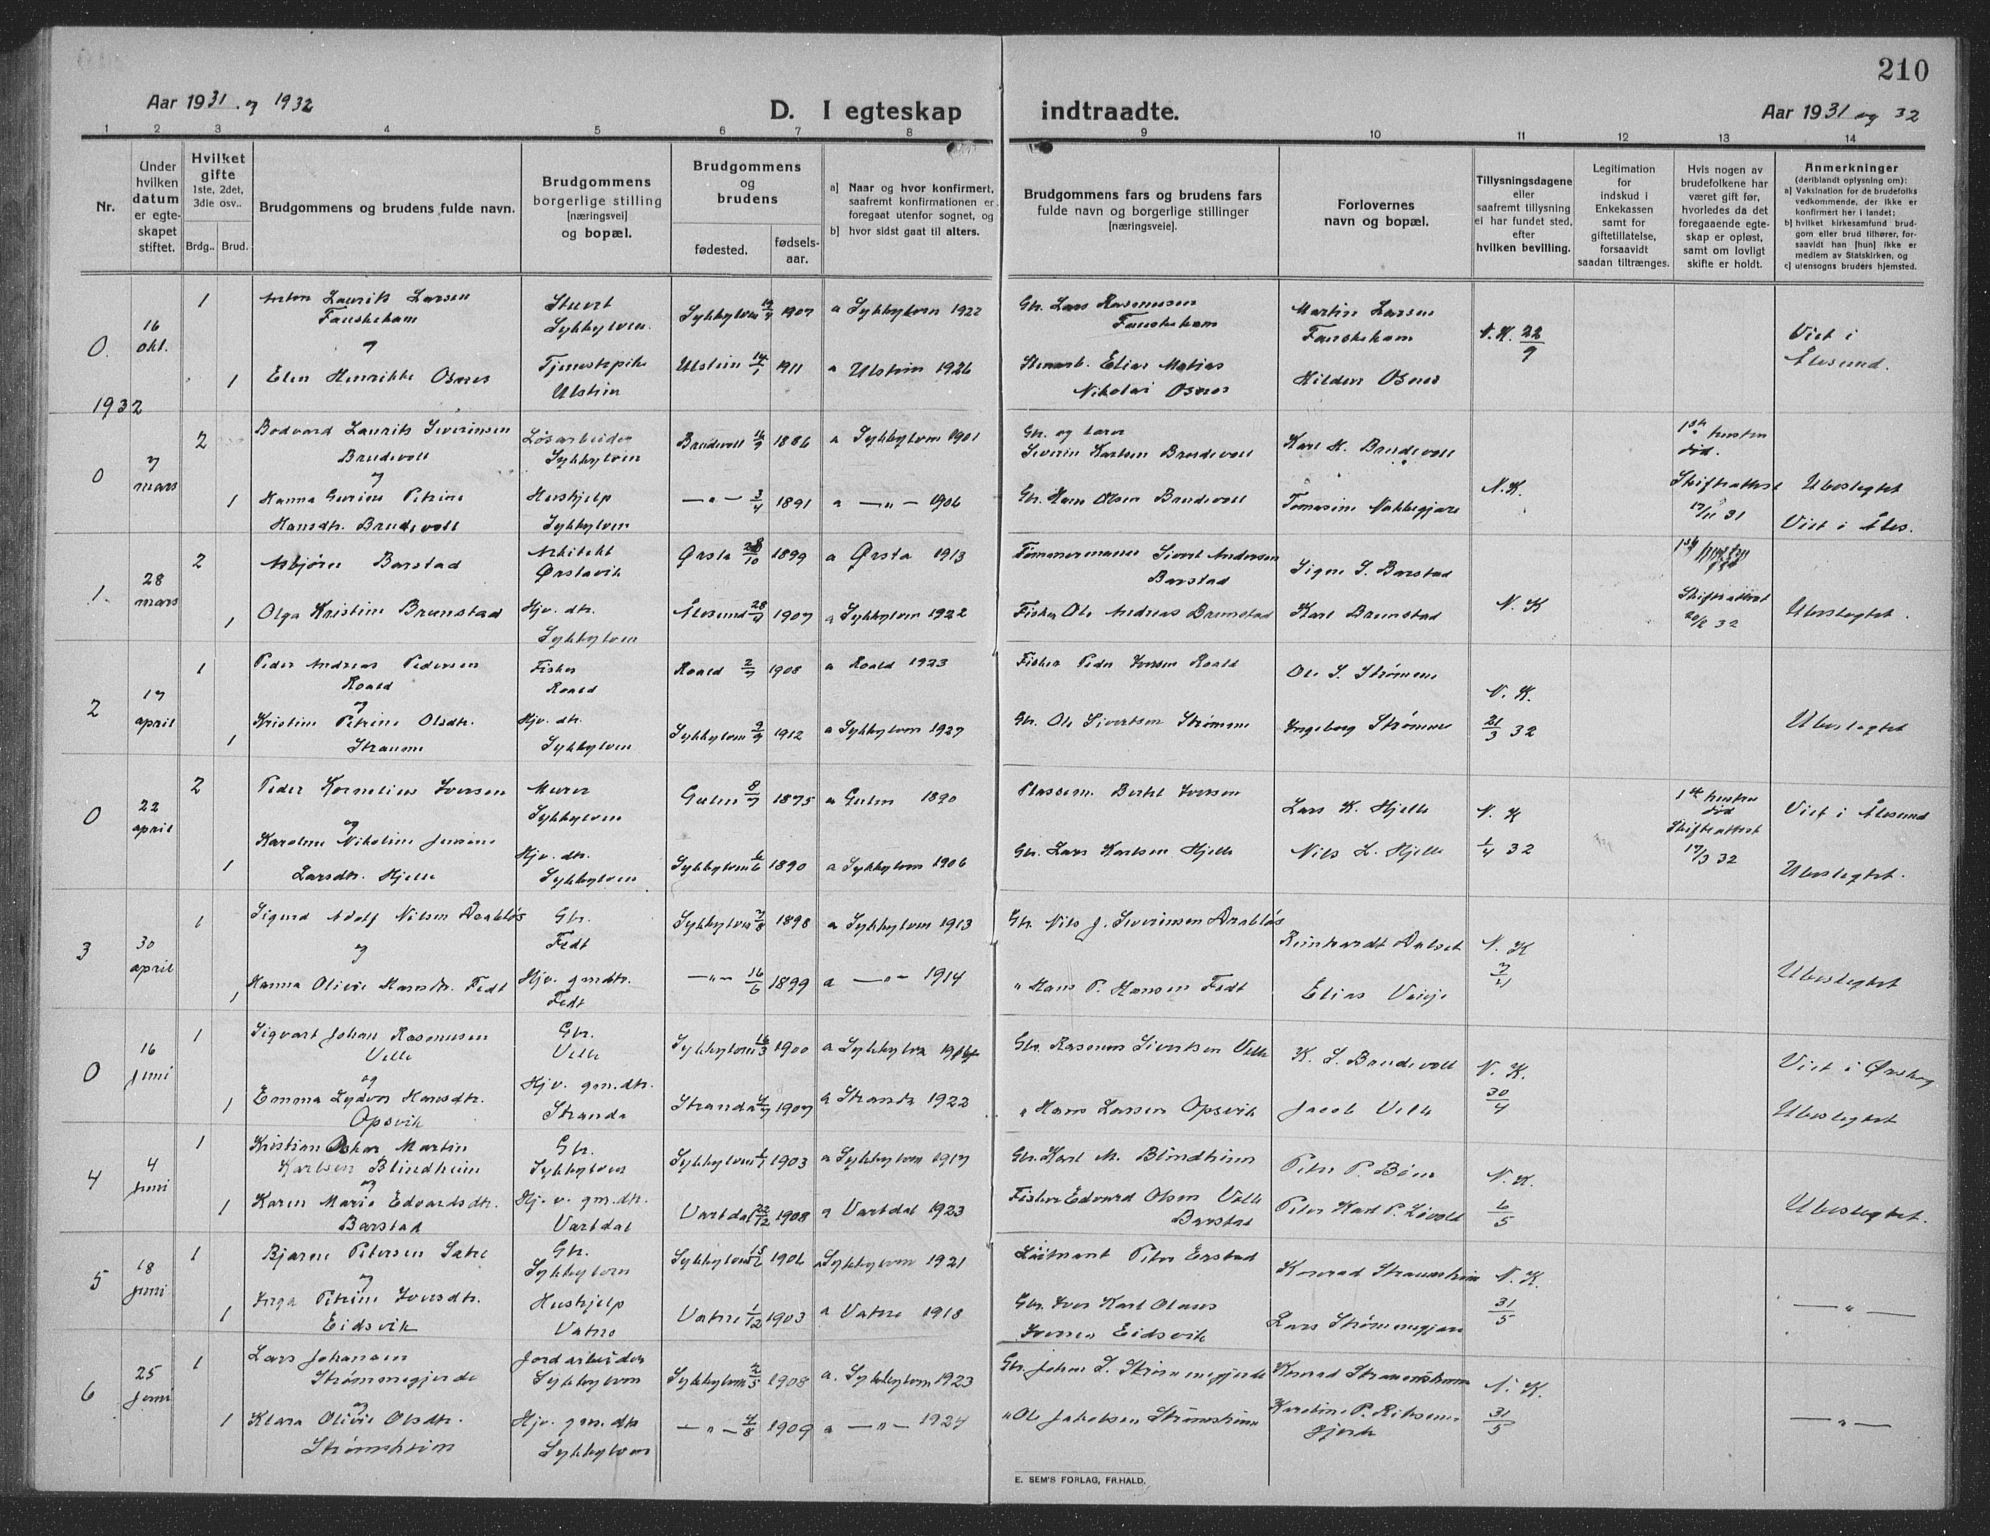 210
Aar 1931 og 1932
D. I egteskap indtraadte.
Aar 1931 og 32
1 2 3 4 5 6 7 8 9 10 11 12 13 14
Nr.
Under hvilken datum er egte-skapet stiftet.
Hvilket gifte
1ste, 2det, 3die osv..
Brdg.. Brud.
Brudgommens og brudens fulde navn.
Brudgommens borgerlige stilling [næringsvei] og bopæl.
Brudgommens og brudens
fødested.
fødsels-aar.
a] Naar og hvor konfirmert, saafremt konfirmationen er foregaat utenfor sognet, og
b] hvor sidst gaat til alters.
Brudgommens fars og brudens fars fulde navn og borgerlige stillinger [næringsveie].
Forlovernes navn og bopæl.
Tillysningsdagene eller saafremt tillysning ei har fundet sted, efter hvilken bevilling.
Legitimation for indskud i Enkekassen samt for giftetillatelse, forsaavidt saadan tiltrænges.
Hvis nogen av brudefolkene har været gift før, hvorledes da det foregaaende egte-skap er opløst, samt om lovligt skifte er holdt.
Anmerkninger
(deriblandt oplysning om):
a] Vaksination for de brudefolks vedkommende, der ikke er konfirmert her i landet;
b] hvilket kirkesamfund brud-gom eller brud tilhører, for-saavidt han [hun] ikke er medlem av Statskirken, og
c] utensogns bruders hjemsted.
0 16 okt. 1 Anton Laurits Larsen Stuert Sykkylven 19/9 1907 a Sykkylven 1922 Gbr. Lars Rasmussen Martin Larsen
Fauskeham Sykkylven Fauskeham Fauskeham N.K. 22/9 Viet i Ålesund.
og
1 Elen Henrikke Osnes Tjenestepike Ulstein 14/1 1911 a Ulstein 1926 Stenarb. Elias Matias Hildur Osnes
Ulstein Nikolai Osnes
1932
0 7 mars 2 Bodvard Laurits Severinsen Løsarbeider Brudevoll 16/9 1886 a Sykkylven 1901 Gbr. og lærer 1ste hustru død.
Brudevoll Sykkylven Severin Karlsen Brudevoll Karl K. Brudevoll
og
1 Hanna Gurine Petrine Hushjelp —"— 3/4 1891 a —"— 1906 Gbr. Hans Olsen Brudevoll Tomasine Nakkegjære N.K. Skifteattest 17/11 31 Ubeslegtet
Hansdtr. Brudevoll Sykkylven Viet i Åles.
1. 28 mars 2 Asbjørn Barstad Arkitekt Ørsta 28/10 1899 a Ørsta 1913 Tømmermann Sivert Andersen Signe S. Barstad
Ørstavik Barstad
1 Olga Kristine Brunstad Hjv. dtr. Ålesund 28/7 1907 a Sykkylven 1922 Fisker Ole Andreas Brunstad Karl Brunstad N. K Skifteattest 32 Ubeslegtet.
Sykkylven
2 17 april 1 Peder Andreas Pedersen Fisker Roald 2/7 1908 a Roald 1923 Fisker Peder Iversen Roald Ole S. Strømme
Roald Roald N. K.
og
1 Kristine Petrine Olsdtr. Hjv. dtr. Sykkylven 2/9 1912 a Sykkylven 1927 Gbr. Ole Sivertsen Strømme Ingeborg Strømme 21/3 32 Ubeslegtet
Straume Sykkylven
0 22 april 2 Peder Kornelius Iversen Murer Gulen 8/7 1875 a Gulen 1890 Plassem. Bertel Iversen Lars K. Hjelle N. K 1ste hustru død Viet i Ålesund
og Sykkylven Skifteattest
1 Karoline Nikoline Jensine Hjv. dtr. Sykkylven 6/6 1890 a Sykkylven 1906 Gbr. Lars Karlsen Hjelle Nils L. Hjelle 1/4 32 17/3 32 Ubeslegtet.
Larsdtr. Hjelle Sykkylven
3 30 april 1 Sigurd Adolf Nilsen Drabløs Gbr. Sykkylven 7/8 1898 a Sykkylven 1913 Gbr. Nils J. Severinsen Drabløs Reinhardt Dalset N. K
og Fedt
1 Hanna Olivie Hansdtr. Fedt Hjv. gmdtr. —"— 16/6 1899 a —"— 1914 " Hans P. Hansen Fedt Elias Ubeslegtet
Fedt
0 16 juni 1 Sigvart Johan Rasmussen Gbr. Sykkylven 16/3 1900 a Sykkylven Gbr. Rasmus Sivertsen Velle K. S. Brudevoll N. K. Viet i
Velle Velle
og
1 Emma Lydvor Hansdtr. Hjv. gm.dtr. Stranda 4/7 1907 a Stranda 1922 " Hans Larsen Opsvik Jacob Velle 30/4 Ubeslegtet
Opsvik Stranda
4 4 juni 1 Kristian Oskar Martin Gbr. Sykkylven 1/1 1903 a Sykkylven 1917 Gbr. Karl M. Blindheim Peter P. Bøen N. K.
Karlsen Blindheim Sykkylven
og
1 Karen Marie Edvardsdtr. Hjv. gm.dtr. Vartdal 22/12 1908 a Vartdal 1923 Fisker Edvard Olsen Velle Peter Karl P. Løvold 6/5 Ubeslegtet.
Barstad Vartdal Barstad
5 18 juni 1 Bjarne Petersen Sætre Gbr. Sykkylven 1906 a Sykkylven 1921 Løitnant Peter Erstad Konrad Straumsheim N. K.
og Sykkylven
1 Inga Petrine Iversdtr. Hushjelp Vatne 1/12 1903 a Vatne 1918 Gbr. Iver Karl Olaus Lars Strømmegjære 31/5 —"—
Eidsvik Vatne Iversen Eidsvik
6 25 juni 1 Lars Johansen Jordarbeider Sykkylven 2/5 1908 a. Sykkylven 1923 Gbr. Johan S. Strømmegjerde Konrad Straumsheim N. K.
Strømmegjerde Sykkylven
og
1 Klara Olivie Olsdtr. Hjv. gm.dtr —"— 4/8 1909 a —"— 1924 " Ole Jakobsen Strømsheim Karoline P. Riksem- 31/5 —"—
Strømsheim Sykkylven gjerde
E. SEM'S FORLAG, FR.HALD.